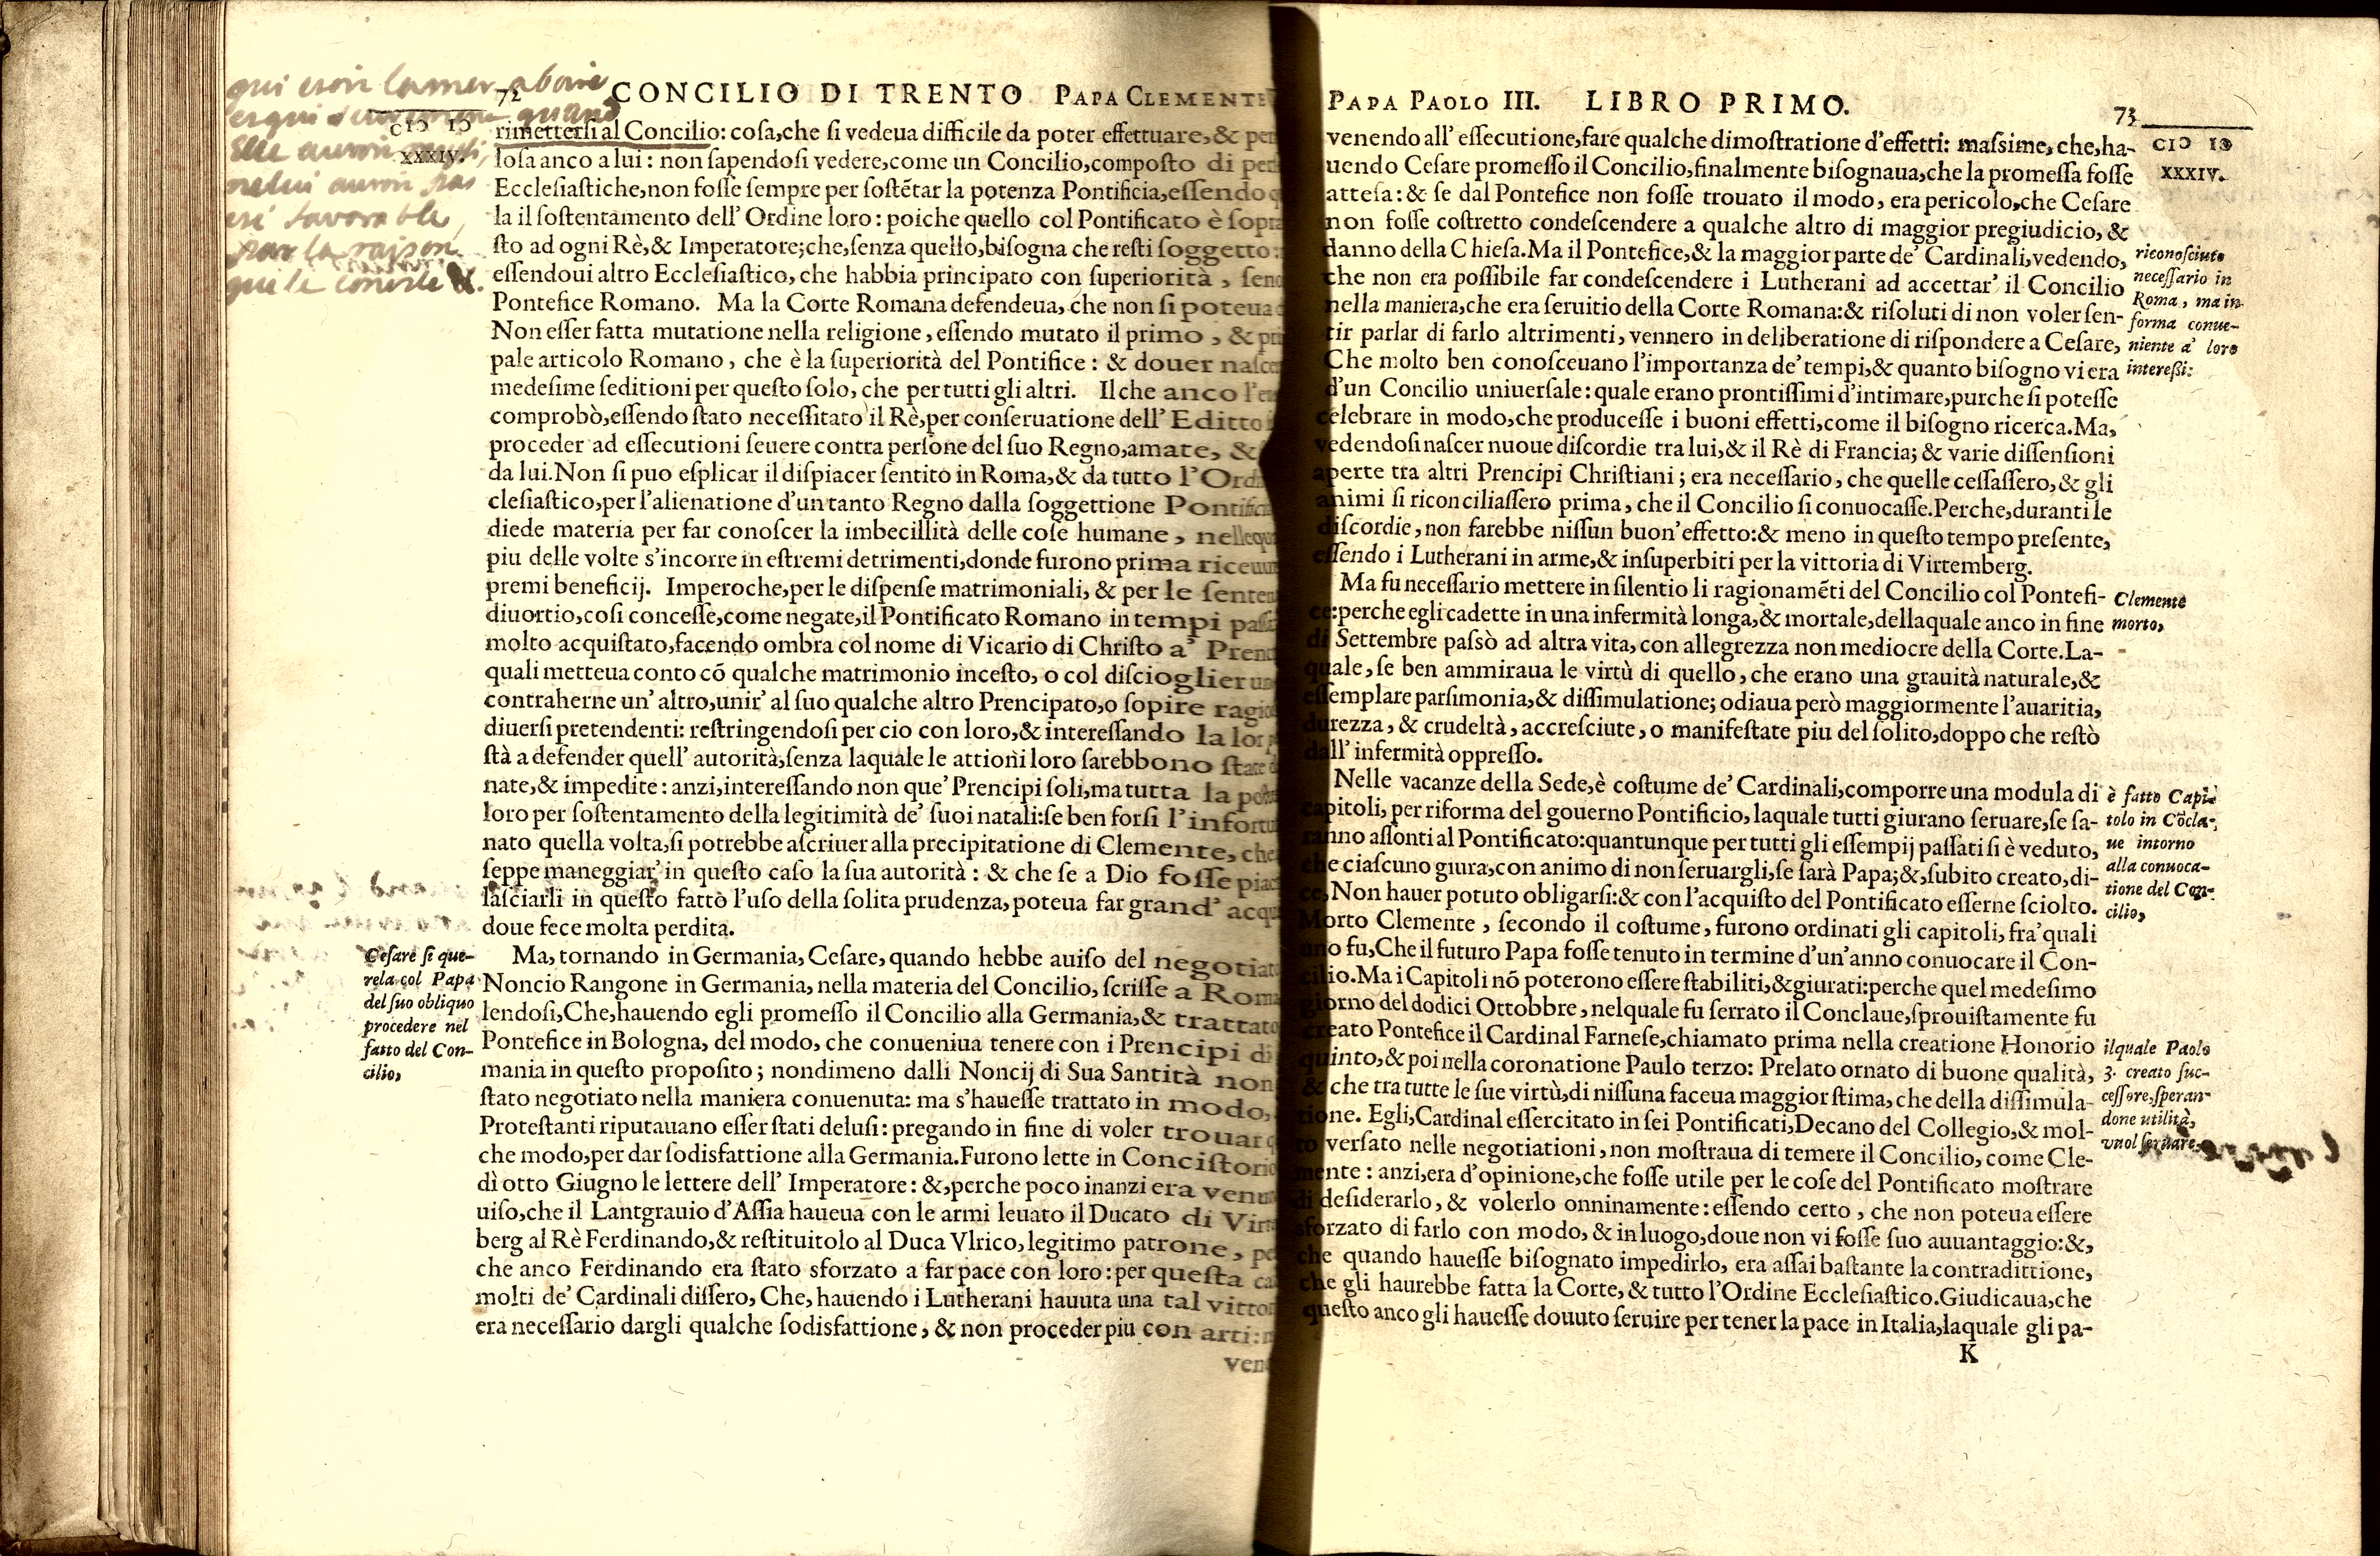 72 CONCILIO DI TRENTO PAPA CLEMENTE
CIƆ IƆ
XXXIV.
rimettersi al Concilio: cosa,che si vedeua difficile da poter effettuare,&
losa anco a lui: non sapendosi vedere,come un Concilio,composto di
Ecclesiastiche,non fosse sempre per sostẽtar la potenza Pontificia,essendo
la il sostentamento dell' Ordine loro: poiche quello col Pontificato è
sto ad ogni Rè,& Imperatore;che,senza quello,bisogna che resti soggetto:
essendoui altro Ecclesiastico, che habbia principato con superiorità,
Pontefice Romano. Ma la Corte Romana defendeua, che non si poteua
Non esser fatta mutatione nella religione, essendo mutato il primo, &
pale articolo Romano, che è la superiorità del Pontifice: & douer
medesime seditioni per questo solo, che per tutti gli altri. Il che anco
comprobò,essendo stato necessitato il Rè,per conseruatione dell' Editto
proceder ad essecutioni seuere contra persone del suo Regno,amate, &
da lui.Non si puo esplicar il dispiacer sentito in Roma,& da tutto
clesiastico,per l'alienatione d'un tanto Regno dalla soggettione
diede materia per far conoscer la imbecillità delle cose humane,
piu delle volte s'incorre in estremi detrimenti,donde furono prima
premi beneficij. Imperoche,per le dispense matrimoniali, & per le
diuortio,cosi concesse,come negate,il Pontificato Romano in tempi
molto acquistato,facendo ombra col nome di Vicario di Christo a'
quali metteua conto cõ qualche matrimonio incesto, o col discioglier
contraherne un' altro,unir' al suo qualche altro Prencipato,o sopire
diuersi pretendenti: restringendosi per cio con loro,& interessando
stà a defender quell' autorità,senza laquale le attioni loro sarebbono
nate,& impedite: anzi,interessando non que' Prencipi soli,ma tutta la
loro per sostentamento della legitimità de' suoi natali:se ben forsi
nato quella volta,si potrebbe ascriuer alla precipitatione di Clemente,
seppe maneggiar' in questo caso la sua autorità: & che se a Dio fosse
lasciarli in questo fatto l'uso della solita prudenza, poteua far grand'
doue fece molta perdita.
Ma, tornando in Germania, Cesare, quando hebbe auiso del
Noncio Rangone in Germania, nella materia del Concilio, scrisse a
lendosi,Che,hauendo egli promesso il Concilio alla Germania,& trattato
Pontefice in Bologna, del modo, che conueniua tenere con i Prencipi
mania in questo proposito; nondimeno dalli Noncij di Sua Santità non
stato negotiato nella maniera conuenuta: ma s'hauesse trattato in modo,
Protestanti riputauano esser stati delusi: pregando in fine di voler
che modo,per dar sodisfattione alla Germania.Furono lette in
dì otto Giugno le lettere dell' Imperatore: &,perche poco inanzi era
uiso,che il Lantgrauio d'Assia haueua con le armi leuato il Ducato di
berg al Rè Ferdinando,& restituitolo al Duca Vlrico, legitimo patrone,
che anco Ferdinando era stato sforzato a far pace con loro: per questa
molti de' Cardinali dissero, Che, hauendo i Lutherani hauuta una tal
era necessario dargli qualche sodisfattione, & non proceder piu con arti:
Cesare si que-
rela col Papa
del suo obliquo
procedere nel
fatto del Con-
cilio,
PAPA PAOLO III. LIBRO PRIMO. 73
CIƆ IƆ
XXXIV.
venendo all' essecutione,fare qualche dimostratione d'effetti: massime, che,ha-
uendo Cesare promesso il Concilio,finalmente bisognaua,che la promessa fosse
attesa: & se dal Pontefice non fosse trouato il modo, era pericolo,che Cesare
non fosse costretto condescendere a qualche altro di maggior pregiudicio, &
danno della Chiesa.Ma il Pontefice,& la maggior parte de' Cardinali,vedendo,
che non era possibile far condescendere i Lutherani ad accettar' il Concilio
nella maniera,che era seruitio della Corte Romana:& risoluti di non voler sen-
tir parlar di farlo altrimenti, vennero in deliberatione di rispondere a Cesare,
Che molto ben conosceuano l'importanza de' tempi,& quanto bisogno vi era
d'un Concilio uniuersale: quale erano prontissimi d'intimare,purche si potesse
celebrare in modo,che producesse i buoni effetti,come il bisogno ricerca.Ma,
vedendosi nascer nuoue discordie tra lui,& il Rè di Francia; & varie dissensioni
aperte tra altri Prencipi Christiani; era necessario, che quelle cessassero,& gli
animi si riconciliassero prima, che il Concilio si conuocasse.Perche,duranti le
discordie, non farebbe nissun buon' effetto:& meno in questo tempo presente,
essendo i Lutherani in arme,& insuperbiti per la vittoria di Virtemberg.
Ma fu necessario mettere in silentio li ragionamẽti del Concilio col Pontefi-
ce:perche egli cadette in una infermità longa,& mortale,dellaquale anco in fine
di Settembre passò ad altra vita, con allegrezza non mediocre della Corte.La-
quale, se ben ammiraua le virtù di quello, che erano una grauità naturale,&
essemplare parsimonia,& dissimulatione; odiaua però maggiormente l'auaritia,
durezza, & crudeltà, accresciute, o manifestate piu del solito,doppo che restò
dall' infermità oppresso.
Nelle vacanze della Sede,è costume de' Cardinali,comporre una modula di
capitoli, per riforma del gouerno Pontificio, laquale tutti giurano seruare,se sa-
ranno assonti al Pontificato:quantunque per tutti gli essempij passati si è veduto,
che ciascuno giura,con animo di non seruargli,se sarà Papa;&,subito creato,di-
ce,Non hauer potuto obligarsi:& con l'acquisto del Pontificato esserne sciolto.
Morto Clemente, secondo il costume, furono ordinati gli capitoli, fra' quali
uno fu,Che il futuro Papa fosse tenuto in termine d'un' anno conuocare il Con-
cilio.Ma i Capitoli nõ poterono essere stabiliti,&giurati:perche quel medesimo
giorno del dodici Ottobbre, nelquale fu serrato il Conclaue,sprouistamente fu
creato Pontefice il Cardinal Farnese,chiamato prima nella creatione Honorio
quinto,& poi nella coronatione Paulo terzo: Prelato ornato di buone qualità,
& che tra tutte le sue virtù,di nissuna faceua maggior stima, che della dissimula-
tione. Egli,Cardinal essercitato in sei Pontificati,Decano del Collegio,& mol-
to versato nelle negotiationi, non mostraua di temere il Concilio, come Cle-
mente: anzi,era d'opinione,che fosse utile per le cose del Pontificato mostrare
di desiderarlo, & volerlo onninamente: essendo certo, che non poteua essere
sforzato di farlo con modo, & in luogo,doue non vi fosse suo auuantaggio:&,
che quando hauesse bisognato impedirlo, era assai bastante la contradittione,
che gli haurebbe fatta la Corte, & tutto l'Ordine Ecclesiastico.Giudicaua,che
questo anco gli hauesse douuto seruire per tener la pace in Italia,laquale gli pa-
K
riconosciuto
necessario in
Roma, ma in
forma conue-
niente a' loro
interessi:
Clemente
morto,
è fatto Capi-
tolo in Cõcla-
ue intorno
alla conuoca-
tione del Con-
cilio,
ilquale Paolo
3. creato suc-
cessore,speran-
done utilità,
vuol seruare